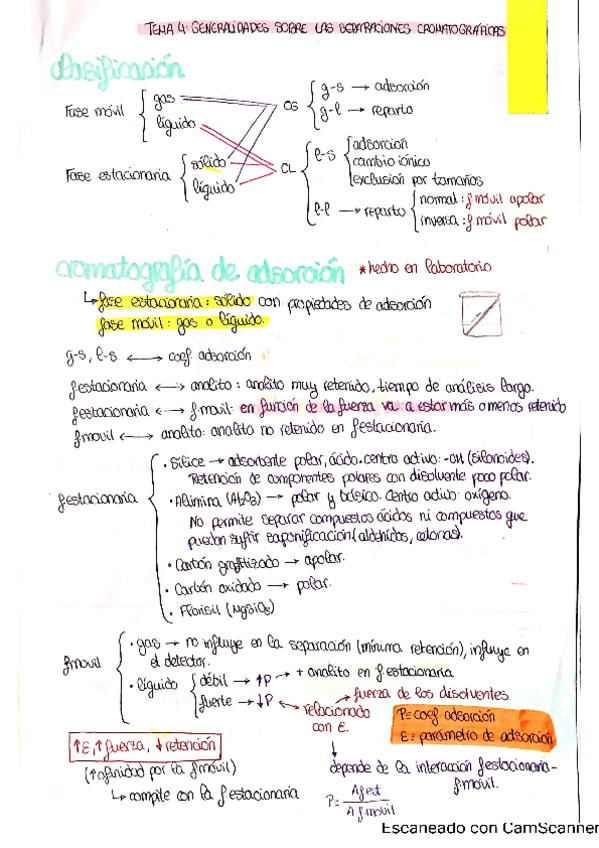 TEMA 4: GENERALIDADES SOBRE LAS SEPARACIONES CROMATOGRÁFICAS
clasificación
Fase móvil { gas
líquido
Fase estacionaria { sólido
líquido
CG { g-s → adsorción
g-l → reparto
CL { l-s { adsorción
cambio iónico
exclusión por tamaños
l-l → reparto { normal: f móvil apolar
inversa: f móvil polar
cromatografía de adsorción *hecho en laboratorio
↳ fase estacionaria: sólido con propiedades de adsorción
fase móvil: gas o líquido.
g-s, l-s ⟷ coef. adsorción
f estacionaria ⟷ analito: analito muy retenido, tiempo de análisis largo.
f estacionaria ⟷ f.movil: en función de la fuerza va a estar más o menos retenido
f movil ⟷ analito: analito no retenido en f estacionaria.
f estacionaria { • Sílice → adsorbente polar, ácido. centro activo: -OH (silanoides).
Retención de componentes polares con disolvente poco polar.
• Alúmina (Al₂O₃) → polar y básico. Centro activo: oxígeno.
No permite separar compuestos ácidos ni compuestos que
puedan sufrir saponificación (aldehídos, cetonas).
• Carbón grafitizado → apolar.
• Carbón oxidado → polar.
• Florisil (MgSiO₃)
f movil { • gas → no influye en la separación (mínima retención), influye en
el detector.
• líquido { débil → ↑P → + analito en f estacionaria
fuerte → ↓P ⟷ relacionado con ε.
→ fuerza de los disolventes.
P = coef adsorción
ε = parámetro de adsorción
↑ε, ↑fuerza, ↓retención
(↑afinidad por la f móvil)
↳ compite con la f estacionaria
↓ depende de la interacción f estacionaria-
f.movil.
P = A f est / A f movil
Escaneado con CamScanner